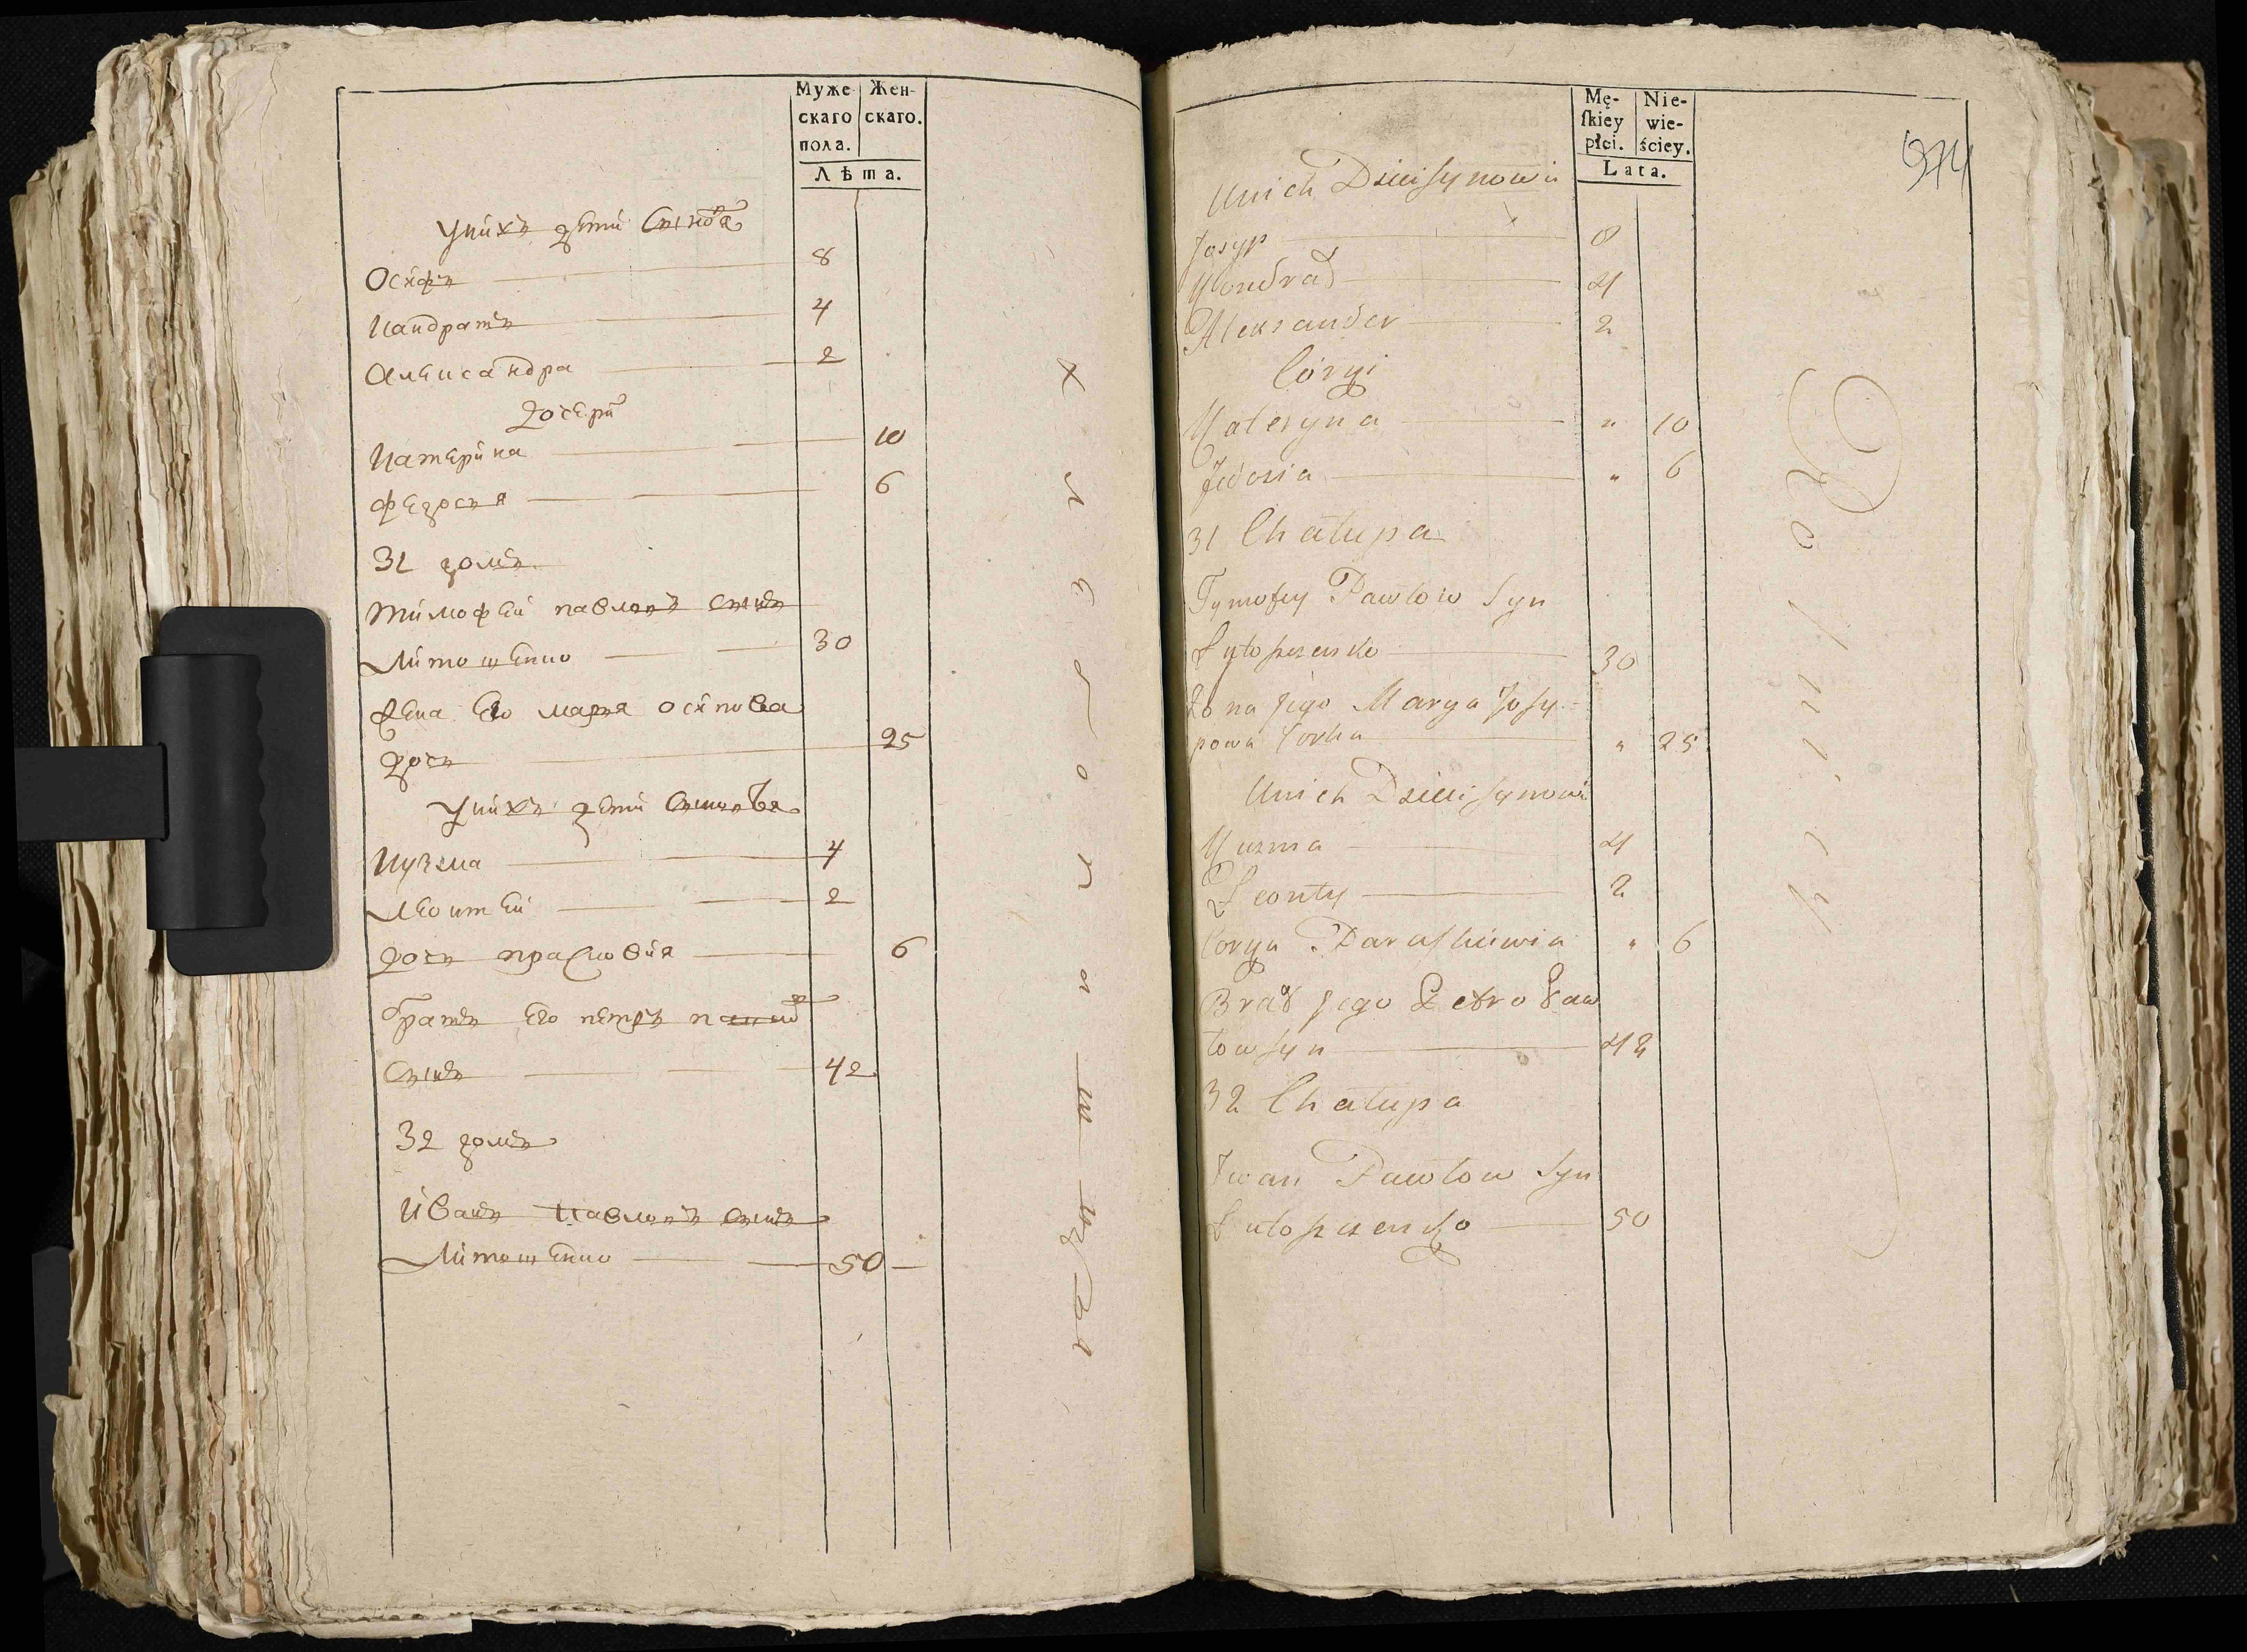 Муже
скаго
пола.
Жен-
скаго.
Лѣта.
Унихъ дети Синовя
Осифъ 8
Кандратъ 4
Александра 2
дочери
Катерина 10
Федосья 6
31 домъ
Тимофей павловъ синъ
Литошенко 30
Жена Его маря осипова
дочь 25
Унихъ дети Синовья
Кузма 4
Леонтей 2
дочь прасковия 6
братъ Его петръ
Синъ 42
32 домъ
Иванъ павловъ синъ
Литошенко 50
Хлебопашцы
Mę-
ſkiey
płci.
Nie-
wie-
ściey.
Lata.
974
Unich Dzieci synowie
Josyp 8
Kondrad 4
Alexander 2
Córyi
Kateryna " 10
Fedosia " 6
31 Chałupa
Tymofey Pawłow Syn
Lytoszenko 30
Zona Jego Marya Josy-
powa Corka " 25
Unich Dzieci synowie
Kuzma 4
Leonty 2
Corya Paraskiewia " 6
Brat Jego Petro Paw
łow syn 42
32 Chałupa
Iwan Pawłow Syn
Lutoszenko 50
Rolnicy